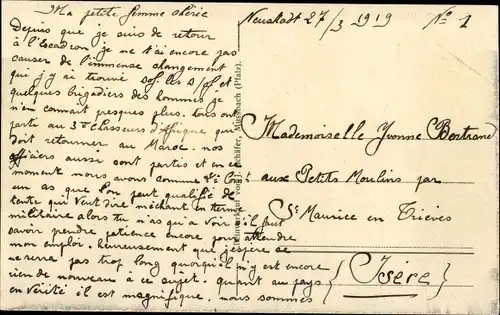 Neustadt 27/3 1919 No 1
Ma petite femme chérie
Depuis que je suis de retour
à l'Escadron je ne t'ai encore pas
causer de l'immense changement
que j'y ai trouvé sof. les s/off et
quelques brigadiers des hommes je
n'en connait presques plus. tous ont
parti au 3me chasseurs d'Afrique qui
doit retourner au Maroc. nos
officiers aussi sont partis et en ce
moment nous avons comme Lt Cont
un as que l'on peut qualifié de
tente qui veut dire méchant en terme
militaire alors tu n'as qu'a voir il faut
savoir prendre patience encore pour attendre
mon emploi. heureusement que j'espère se
ne serra pas trop long quoiqu'il n'y est encore
rien de nouveau à ce sujet. quant au pays
en vérité il est magnifique. nous sommes
Mademoiselle Yvonne Bertrand
aux Petits Moulins par
St Maurice en Trièves
(Isère)
Schäfer, (Pfalz).